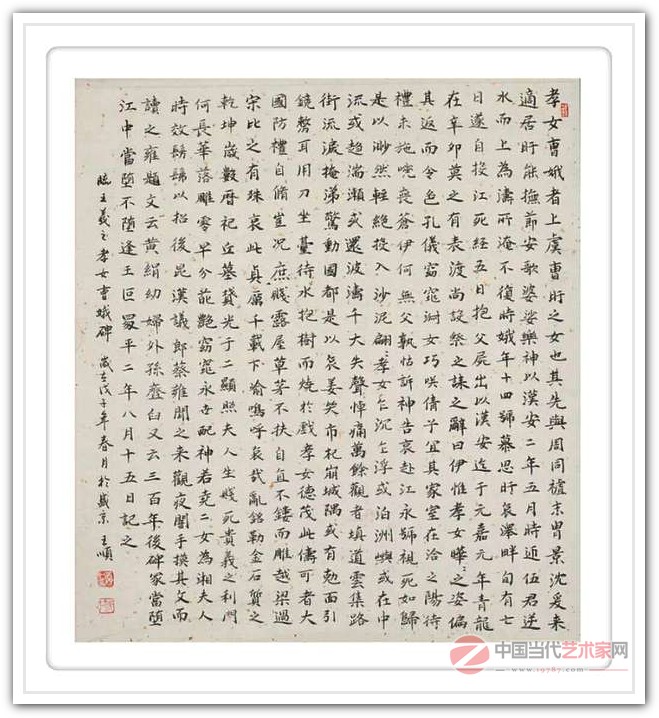 孝女曹娥者上虞曹盱之女也其先與周同禮末胄景沈爰来
適居盱能撫節安歌婆娑樂神以漢安二年五月時迎伍君逆
水而上為濤所淹不復時娥年十四號慕思盱哀澤畔旬有七
日遂自投江死經五日抱父屍出以漢安迄于元嘉元年青龍
在辛卯莫之有表度尚設祭之誄之辭曰伊惟孝女曄〻之姿偏
其返而令色孔儀窈窕淑女巧咲倩子宜其家室在洽之陽待
禮未施嗟喪蒼伊何無父孰怙訴神告哀赴江永號視死如歸
是以眇然輕絕投入沙泥翩〻孝女乍沉乍浮或泊洲嶼或在中
流或趨湍瀨或還波濤千夫失聲悼痛萬餘觀者填道雲集路
衢流淚掩涕驚動國都是以哀姜哭市杞崩城隅或有勉面引
鏡剺耳用刀坐臺待水抱樹而燒於戲孝女德茂此儔何者大
國防禮自脩豈况庶賤露屋草茅不扶自直不鏤而雕越梁過
宋比之有殊哀此貞厲千載不渝嗚呼哀哉亂銘勒金石質之
乾坤歲數曆祀丘墓光于顯照夫人生賤死貴義之利門
何長華落雕零早分葩艷窈窕永世配神若堯二女為湘夫人
時效髣髴以招後昆漢議郎蔡雍聞之来觀夜闇手摸其文而
讀之雍題文云黃絹幼婦外孫齏臼又云三百年後碑冢當墮
江中當墮不墮逢王叵昇平二年八月十五日記之
臨王羲之孝女曹娥碑 歲在戊子年春月於盛京 王順
中国当代艺术家网
www.19787.com